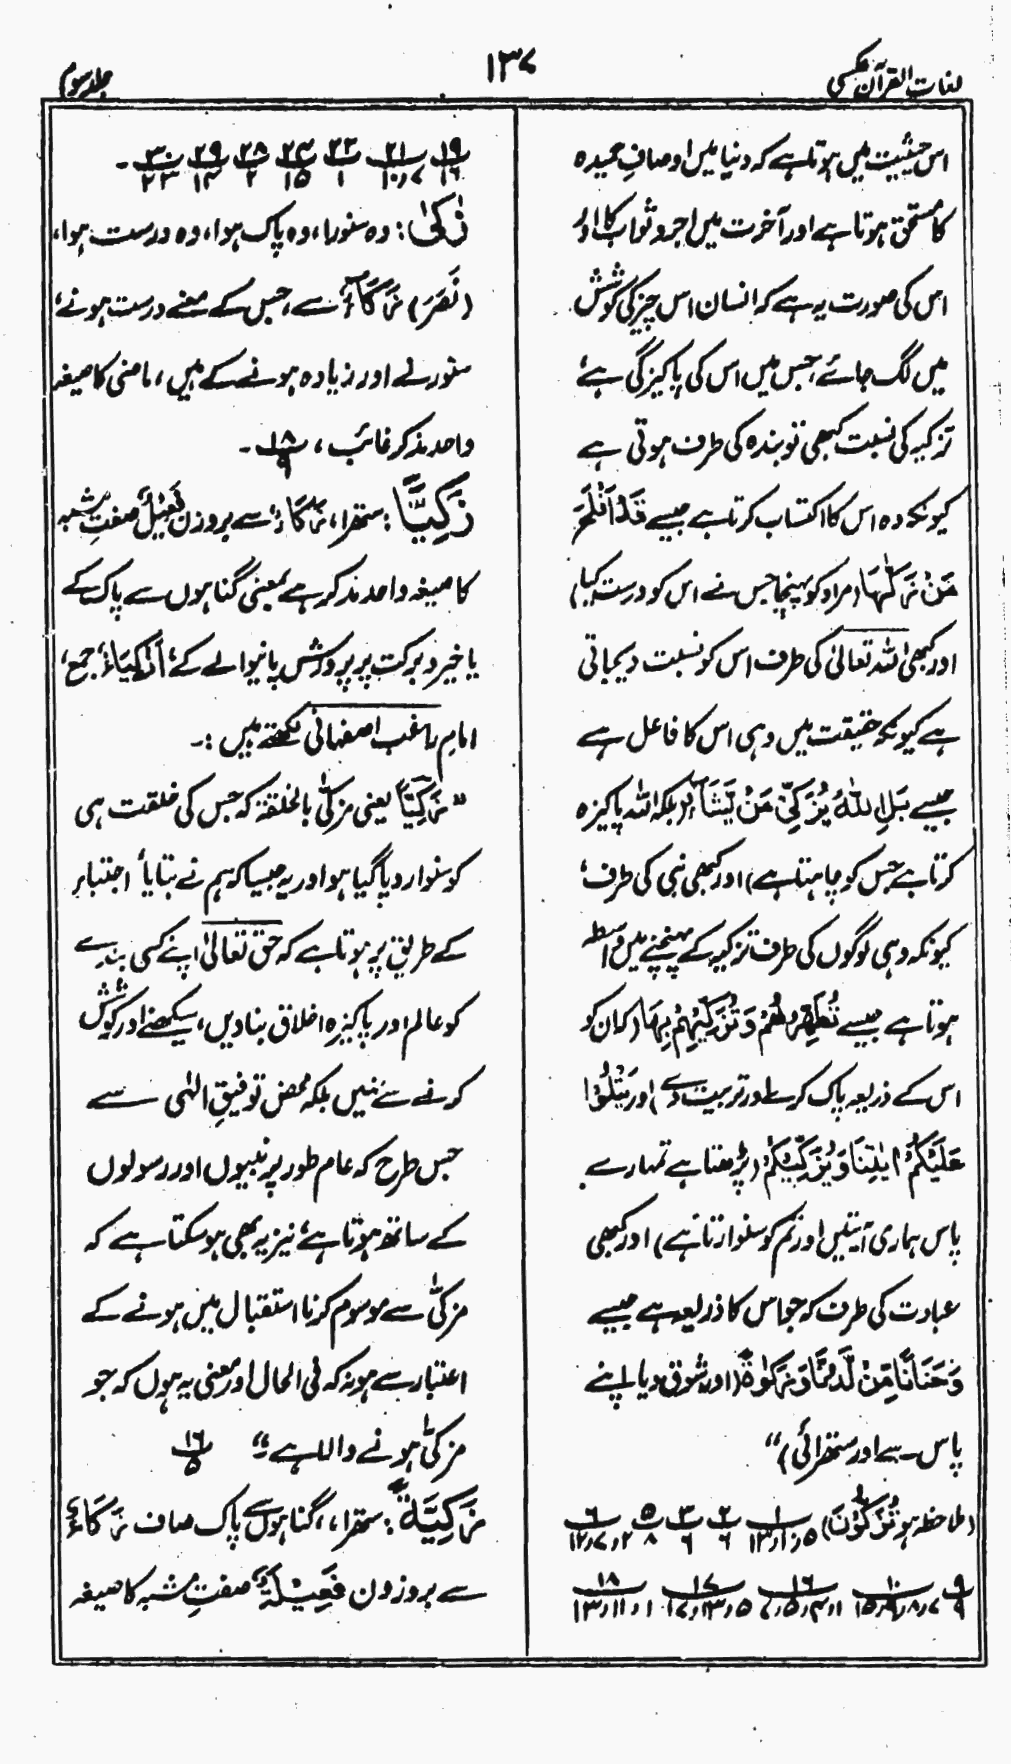 لغات القرآن عکسی
۱۳۷
جلد سوم
اس حیثیت میں ہوتا ہے کہ دنیا میں اوصافِ حمیدہ
کا مستحق ہوتا ہے اور آخرت میں اجر و ثواب کا اور
اس کی صورت یہ ہے کہ انسان اس چیز کی کوشش
میں لگ جائے، جس میں اس کی پاکیزگی ہے،
تزکیہ کی نسبت کبھی تو بندہ کی طرف ہوتی ہے
کیونکہ وہ اس کا اکتساب کرتا ہے جیسے قَدْ اَفْلَحَ
مَنْ زَكّٰهَا (مراد کو پہنچا جس نے اس کو درست کیا)
اور کبھی اللہ تعالیٰ کی طرف اس کو نسبت دیجاتی
ہے کیونکہ حقیقت میں وہی اس کا فاعل ہے
جیسے بَلِ اللّٰهُ يُزَكِّيْ مَنْ يَّشَآءُ (بلکہ اللہ پاکیزہ
کرتا ہے جس کو چاہتا ہے) اور کبھی نبی کی طرف،
کیونکہ وہی لوگوں کی طرف تزکیہ کے پہنچنے میں واسطہ
ہوتا ہے جیسے تُطَهِّرُهُمْ وَتُزَكِّيْهِمْ بِهَا (کہ ان کو
اس کے ذریعہ پاک کرے اور تربیت دے) اور يَتْلُوْا
عَلَيْكُمْ اٰيٰتِنَا وَيُزَكِّيْكُمْ (پڑھتا ہے تمہارے
پاس ہماری آیتیں اور تم کو سنوارتا ہے) اور کبھی
عبادت کی طرف کہ جو اس کا ذریعہ ہے جیسے
وَحَنَانًا مِّنْ لَّدُنَّا وَزَكٰوةً (اور شوق دیا اپنے
پاس سے اور ستھرائی)“
(ملاحظہ ہو تُزَكُّوْنَ) ۱/۵ر۱۰ر۱۳ ۲/۶ ۳/۶ ۵/۸ ۶/۲ر۷ر۱۲
۹/۹ ۱۰/۷ر۸ر۹ر۱۵ ۱۶/۱ر۴ر۵ر۷ ۱۷/۵ر۱۳ر۱۷ ۱۸/۱ر۱۱ر۱۳
۱۹/۱۶ ۲۱/۷ر۱۰ ۲۲/۱ ۲۴/۱۵ ۲۸/۲ ۲۹/۱۴ ۳۰/۲۳ ۔
زَكٰى : وہ سنورا، وہ پاک ہوا، وہ درست ہوا،
(نَصَرَ) زَكَآءٌ سے، جس کے معنے درست ہونے،
سنورنے اور زیادہ ہونے کے ہیں، ماضی کا صیغہ
واحد مذکر غائب، ۱۸/۹ ۔
زَكِيًّا : ستھرا، زَكَآءٌ سے بروزن فَعِيْلٌ صفتِ مشبہ
کا صیغہ واحد مذکر ہے بمعنی گناہوں سے پاک کے
یا خیر و برکت پر پرورش پانیوالے کے، اَزْكِيَآءُ جمع،
امام راغب اصفہانی لکھتے ہیں :۔
”زَكِيًّا یعنی مزکّیٰ بالخلقۃ کہ جس کی خلقت ہی
کو سنوار دیا گیا ہو اور یہ جیسا کہ ہم نے بتایا، اجتباء
کے طریق پر ہوتا ہے کہ حق تعالیٰ اپنے کسی بندے
کو عالم اور پاکیزہ اخلاق بنادیں، سیکھنے اور کوشش
کرنے سے نہیں بلکہ محض توفیقِ الٰہی سے
جس طرح کہ عام طور پر نبیوں اور رسولوں
کے ساتھ ہوتا ہے، نیز یہ بھی ہو سکتا ہے کہ
مزکّیٰ سے موسوم کرنا استقبال میں ہونے کے
اعتبار سے ہو نہ کہ فی الحال اور معنی یہ ہوں کہ جو
مزکّیٰ ہونے والا ہے“ ۱۶/۵
زَكِيَّةً : ستھرا، گناہوں سے پاک صاف زَكَآءٌ
سے بروزن فَعِيْلَةٌ صفتِ مشبہ کا صیغہ